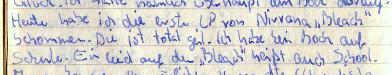 ich habe nämlich überhaupt am Bock darauf.
Heute habe ich die erste LP von Nirvana „Bleach"
bekommen. Die ist total geil. Ich habe kein Bock auf
Schule. Ein Lied auf der „Bleach" heißt auch School.